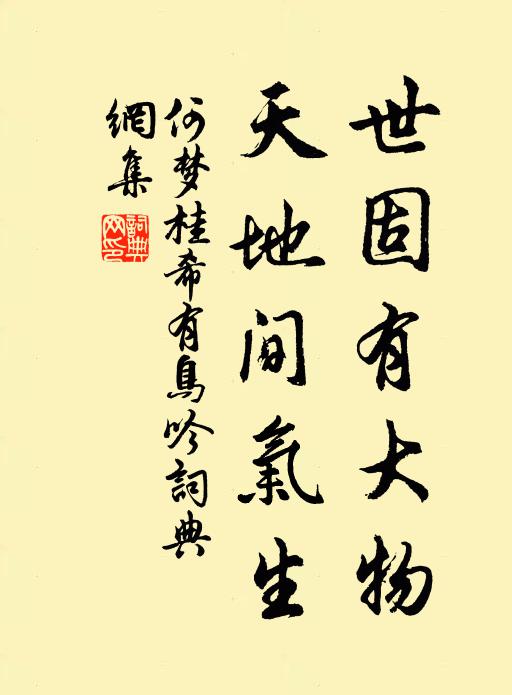 世固有大物
天地间氣生
何梦桂希有鳥吟詞典
網集
詞典
网印